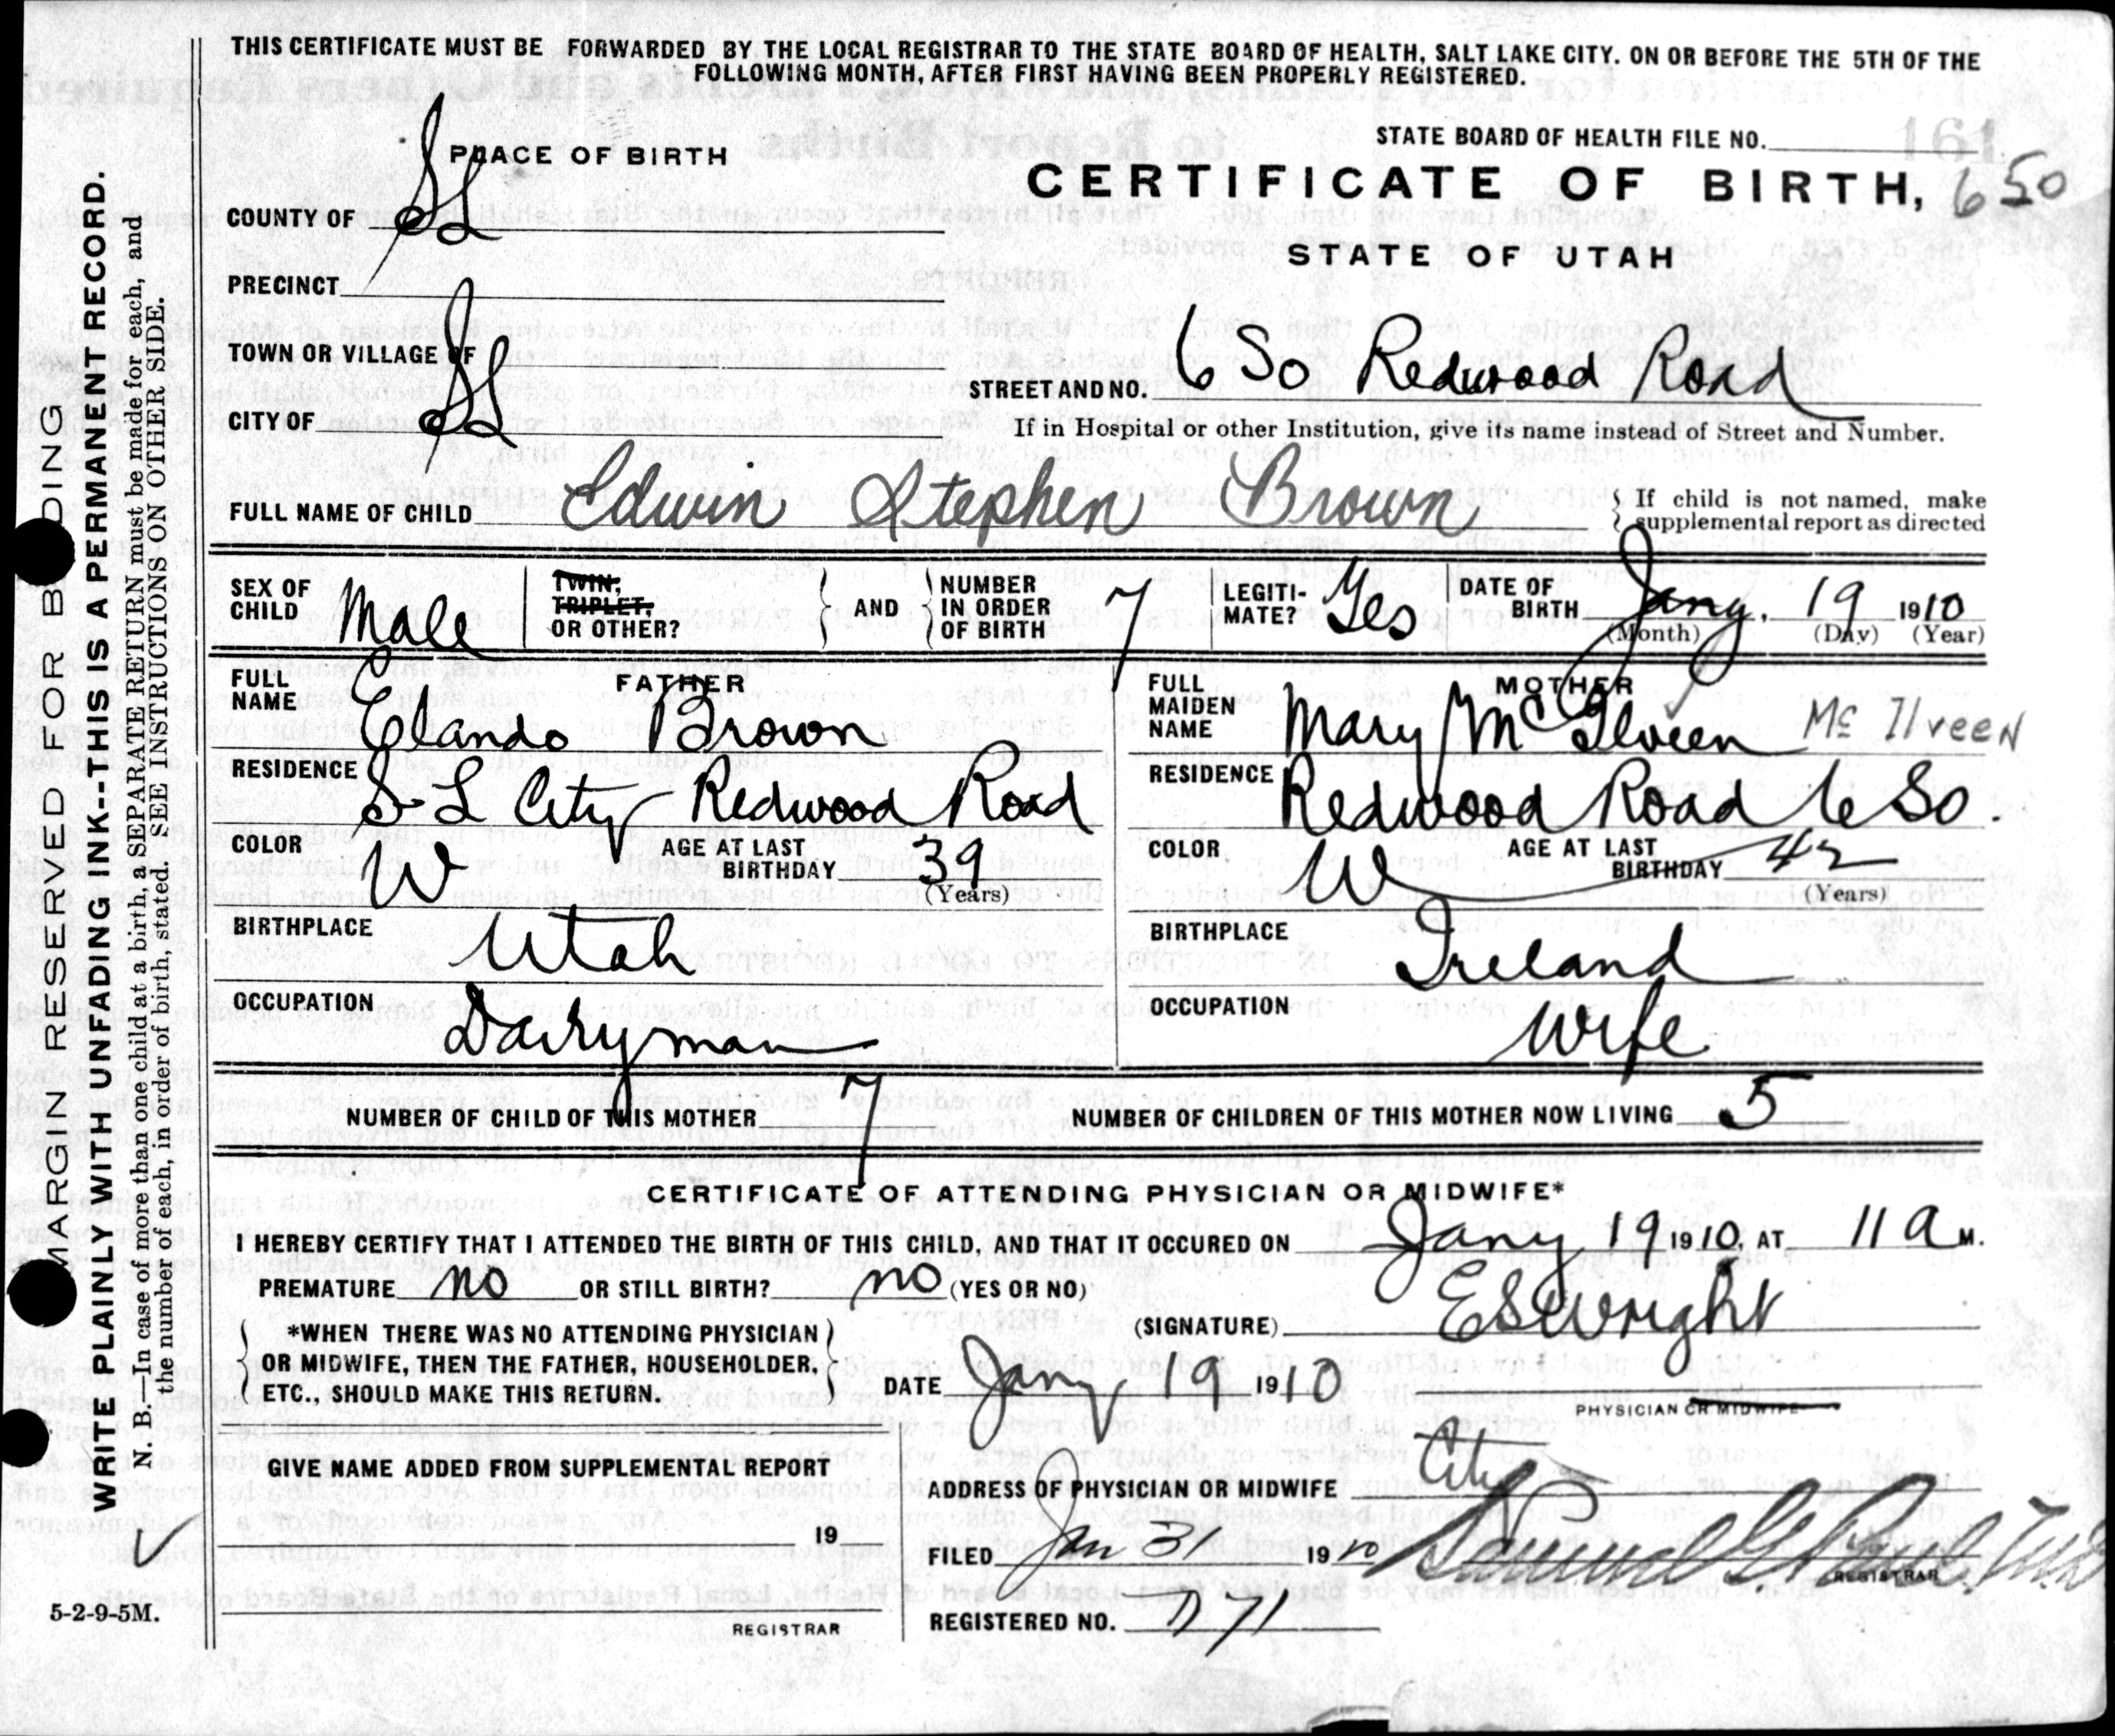 THIS CERTIFICATE MUST BE FORWARDED BY THE LOCAL REGISTRAR TO THE STATE BOARD OF HEALTH, SALT LAKE CITY. ON OR BEFORE THE 5TH OF THE
FOLLOWING MONTH, AFTER FIRST HAVING BEEN PROPERLY REGISTERED.
MARGIN RESERVED FOR BINDING
WRITE PLAINLY WITH UNFADING INK--THIS IS A PERMANENT RECORD.
N. B.—In case of more than one child at a birth, a SEPARATE RETURN must be made for each, and
the number of each, in order of birth, stated. SEE INSTRUCTIONS ON OTHER SIDE.
PLACE OF BIRTH
STATE BOARD OF HEALTH FILE NO.
CERTIFICATE OF BIRTH, 650
STATE OF UTAH
COUNTY OF SL
PRECINCT
TOWN OR VILLAGE OF
CITY OF SL
STREET AND NO. 6 So Redwood Road
If in Hospital or other Institution, give its name instead of Street and Number.
FULL NAME OF CHILD Edwin Stephen Brown
If child is not named, make
supplemental report as directed
SEX OF CHILD Male
TWIN, TRIPLET, OR OTHER?
AND
NUMBER IN ORDER OF BIRTH 7
LEGITIMATE? Yes
DATE OF BIRTH Jany. 19 1910
(Month) (Day) (Year)
FATHER
FULL NAME Elando Brown
RESIDENCE S L City Redwood Road
COLOR W AGE AT LAST BIRTHDAY 39
(Years)
BIRTHPLACE Utah
OCCUPATION Dairyman
MOTHER
FULL MAIDEN NAME Mary McIlveen Mc Ilveen
RESIDENCE Redwood Road 6 So.
COLOR W AGE AT LAST BIRTHDAY 42
(Years)
BIRTHPLACE Ireland
OCCUPATION Wife
NUMBER OF CHILD OF THIS MOTHER 7 NUMBER OF CHILDREN OF THIS MOTHER NOW LIVING 5
CERTIFICATE OF ATTENDING PHYSICIAN OR MIDWIFE*
I HEREBY CERTIFY THAT I ATTENDED THE BIRTH OF THIS CHILD, AND THAT IT OCCURED ON Jany 19 1910, AT 11 a M.
PREMATURE no OR STILL BIRTH? no (YES OR NO)
*WHEN THERE WAS NO ATTENDING PHYSICIAN
OR MIDWIFE, THEN THE FATHER, HOUSEHOLDER,
ETC., SHOULD MAKE THIS RETURN.
(SIGNATURE) ES Wright
DATE Jany 19 1910
PHYSICIAN OR MIDWIFE
GIVE NAME ADDED FROM SUPPLEMENTAL REPORT
19
REGISTRAR
5-2-9-5M.
ADDRESS OF PHYSICIAN OR MIDWIFE City
FILED Jan 31 1910 Samuel G Paul
REGISTRAR
REGISTERED NO. 71